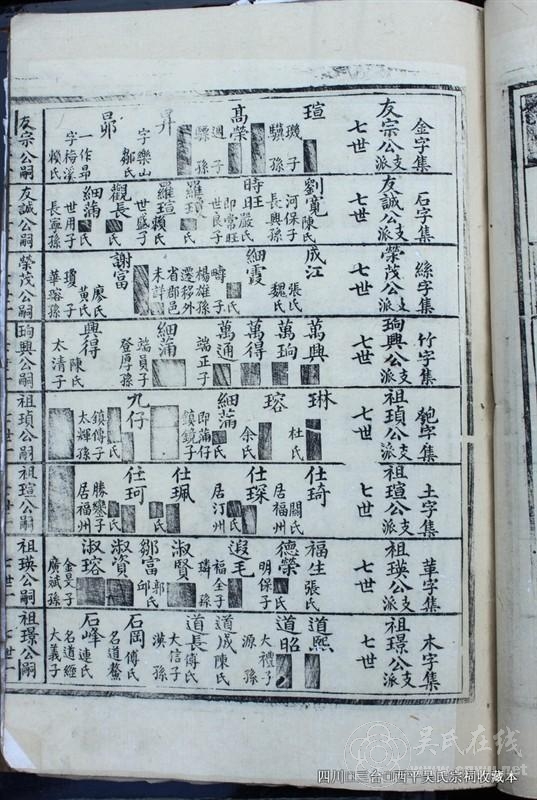 金字集
友宗公支派
七世
瑄
璣子
驥孫
高榮
週子
驥孫
昇
字樂山
鄒氏
昴
一作昂
字梅溪
賴氏
友宗公嗣
石字集
友誠公支派
七世
劉寬
陳氏
河保子
長興孫
時旺
嚴氏
即常旺
世良子
羅璸
羅瑄
賴氏
觀長
世盛子
細蒲
氏
世用子
長寧孫
友誠公嗣
絲字集
榮茂公支派
七世
成江
張氏
魏氏
細霞
氏
時子
楊雄孫
遷移外
省郡邑
未詳
謝富
廖氏
黃氏
瓊子
華瑢孫
榮茂公嗣
竹字集
珣興公支派
七世
萬興
萬珣
萬得
萬通
端正子
細蒲
端員子
登厚孫
興得
陳氏
太清子
珣興公嗣
匏字集
祖瑱公支派
七世
琳
杜氏
瑢
余氏
細蒲
氏
即蒲仔
鎮鏡子
九仔
氏
鎮傳子
太輝孫
祖瑱公嗣
土字集
祖瑄公支派
七世
仕琦
關氏
居福州
仕琛
氏
居汀州
仕珮
仕珂
氏
勝寥子
居福州
祖瑄公嗣
革字集
祖瑛公支派
七世
福生
張氏
德榮
氏
明保子
遐毛
福全子
璘孫
淑賢
郭氏
鄒富
邱氏
淑資
淑瑢
金旻子
廣斌孫
祖瑛公嗣
木字集
祖璟公支派
七世
道熙
道昭
大禮子
源孫
道成
陳氏
道長
傅氏
大信子
漢孫
石岡
傅氏
名道鰲
石峰
連氏
名道經
大義子
祖璟公嗣
吳氏在线
www.cnwu.net
四川□三台□西平吴氏宗祠收藏本